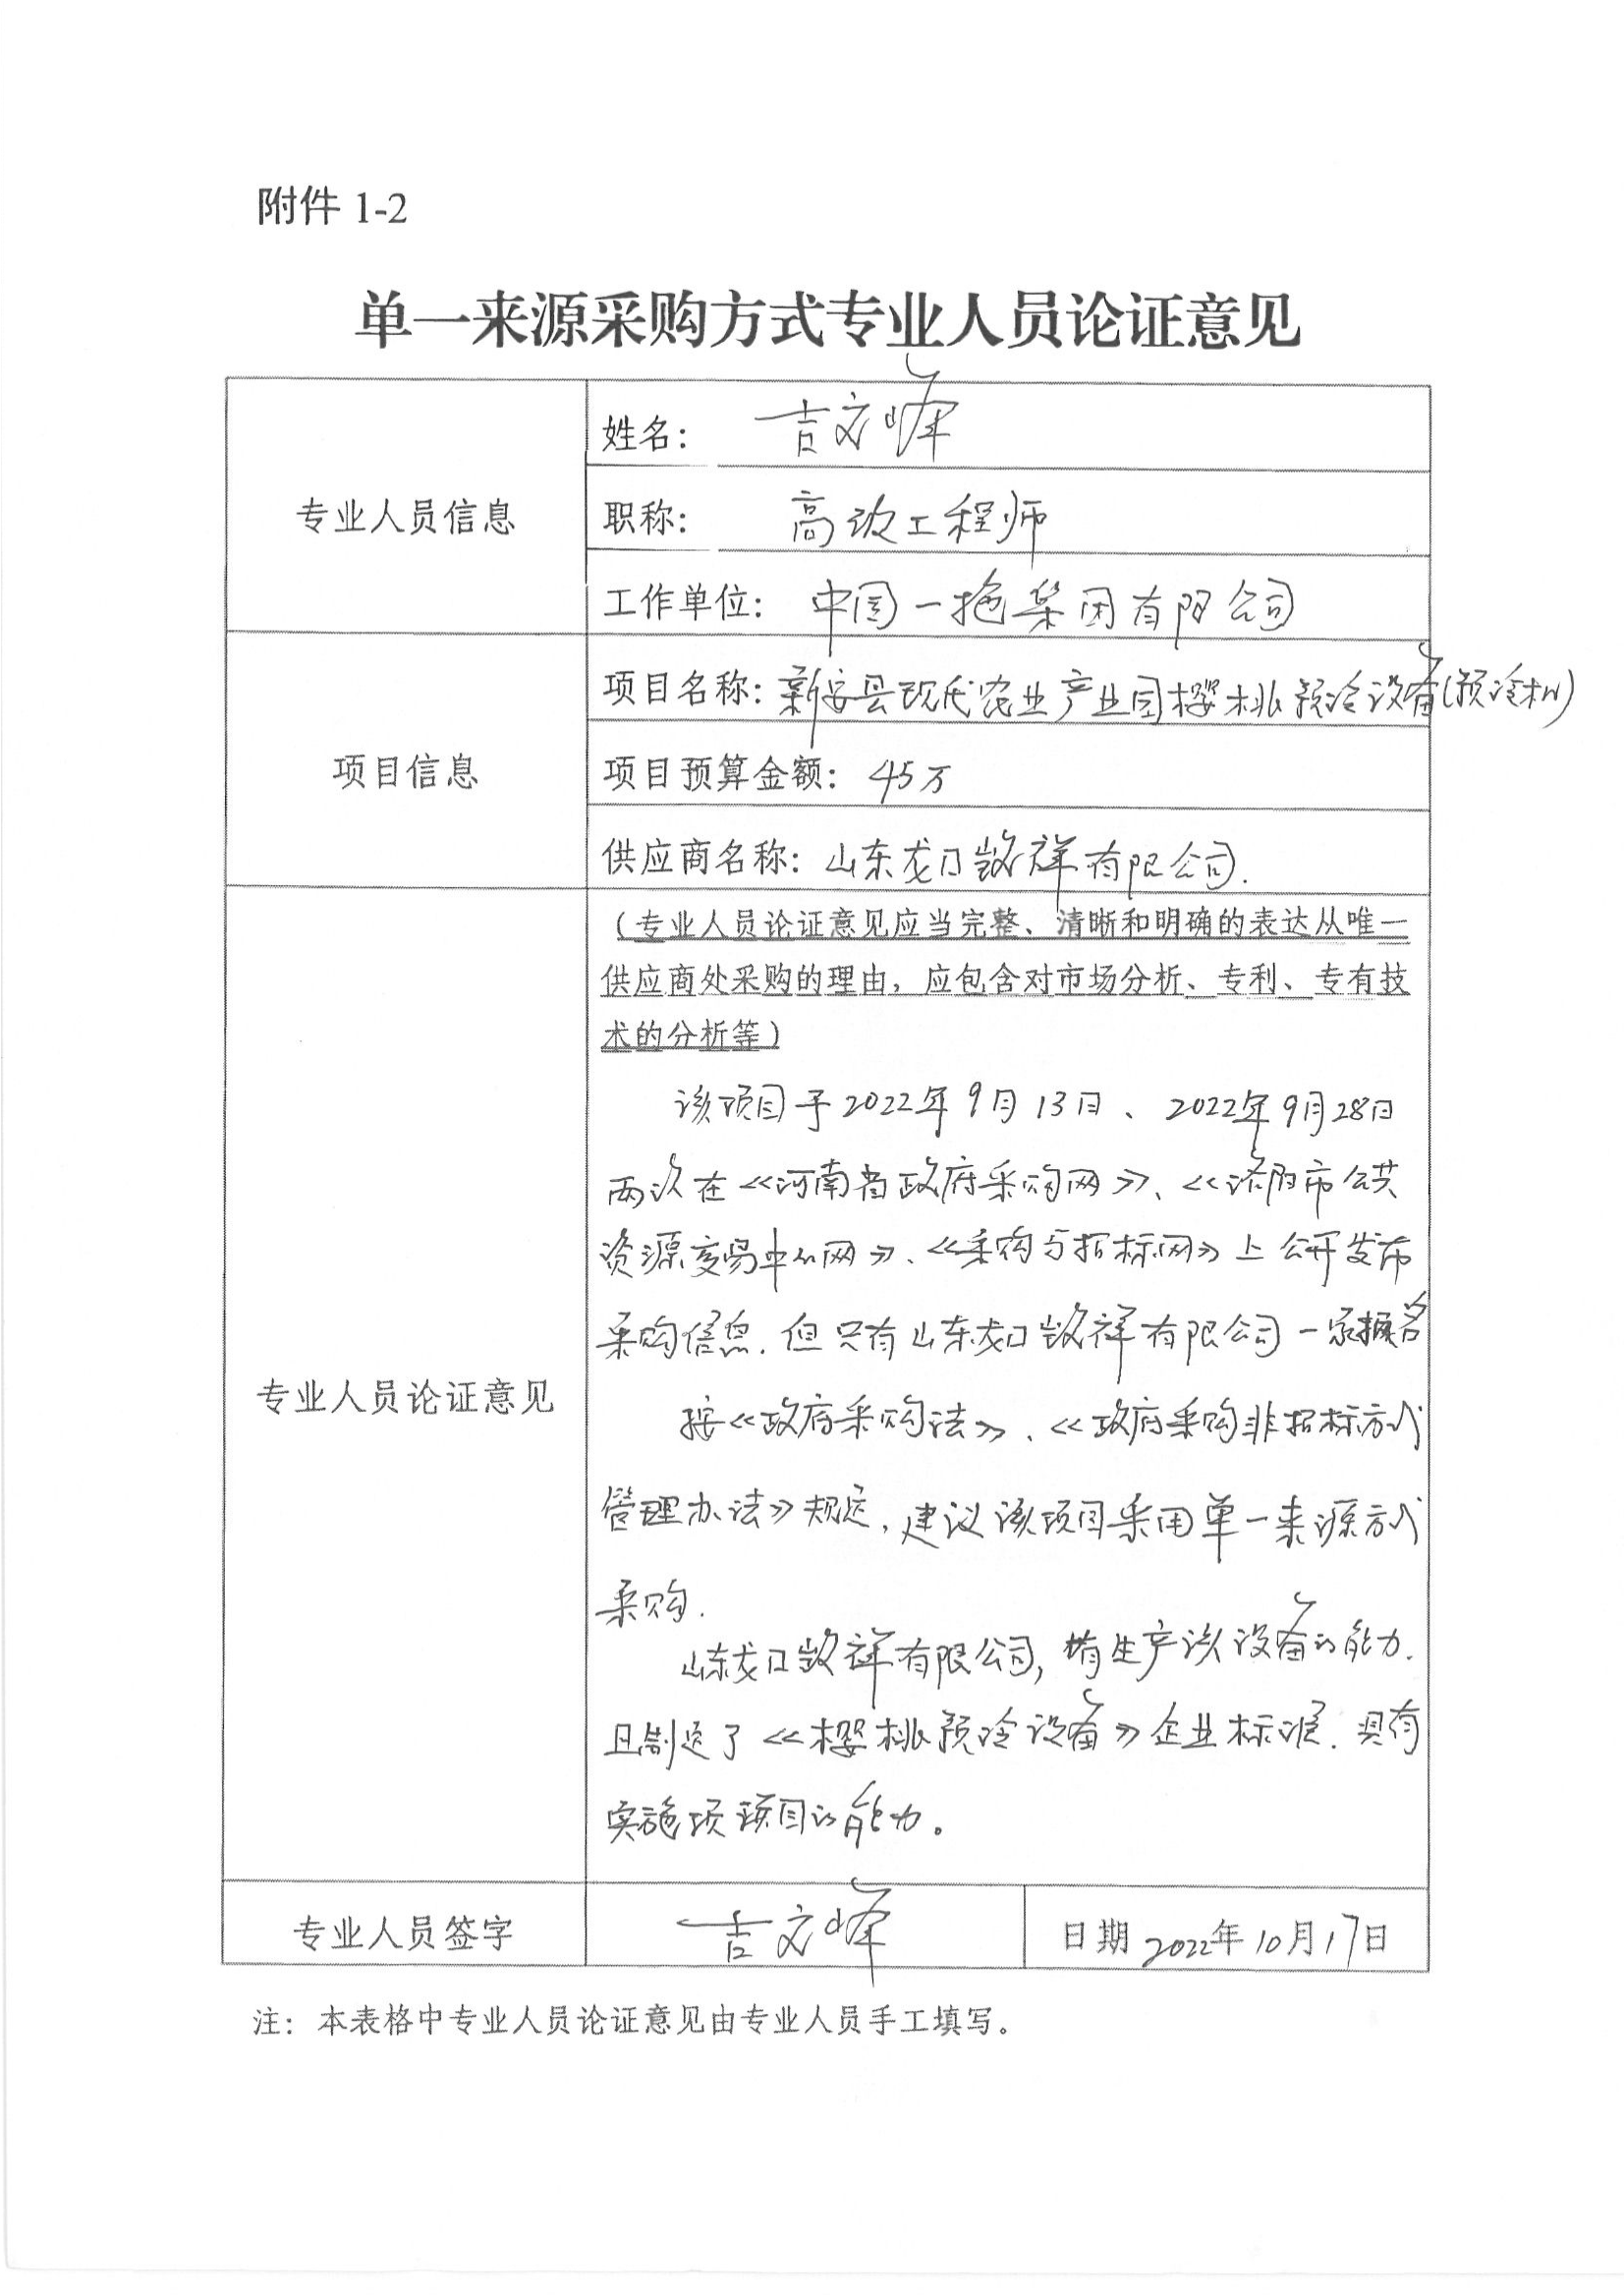 附件 1-2
单一来源采购方式专业人员论证意见
专业人员信息
姓名： 吉文峰
职称： 高级工程师
工作单位： 中国一拖集团有限公司
项目信息
项目名称：新安县现代农业产业园樱桃预冷设备(预冷机)
项目预算金额：45万
供应商名称：山东龙口凯祥有限公司.
专业人员论证意见
（专业人员论证意见应当完整、清晰和明确的表达从唯一
供应商处采购的理由，应包含对市场分析、专利、专有技
术的分析等）
该项目于2022年9月13日、2022年9月28日
两次在《河南省政府采购网》、《洛阳市公共
资源交易中心网》、《采购与招标网》上公开发布
采购信息.但只有山东龙口凯祥有限公司一家报名
按《政府采购法》、《政府采购非招标方式
管理办法》规定,建议该项目采用单一来源方式
采购.
山东龙口凯祥有限公司,有生产该设备的能力.
且制定了《樱桃预冷设备》企业标准.具有
实施该项目的能力。
专业人员签字
吉文峰
日期 2022年10月17日
注：本表格中专业人员论证意见由专业人员手工填写。